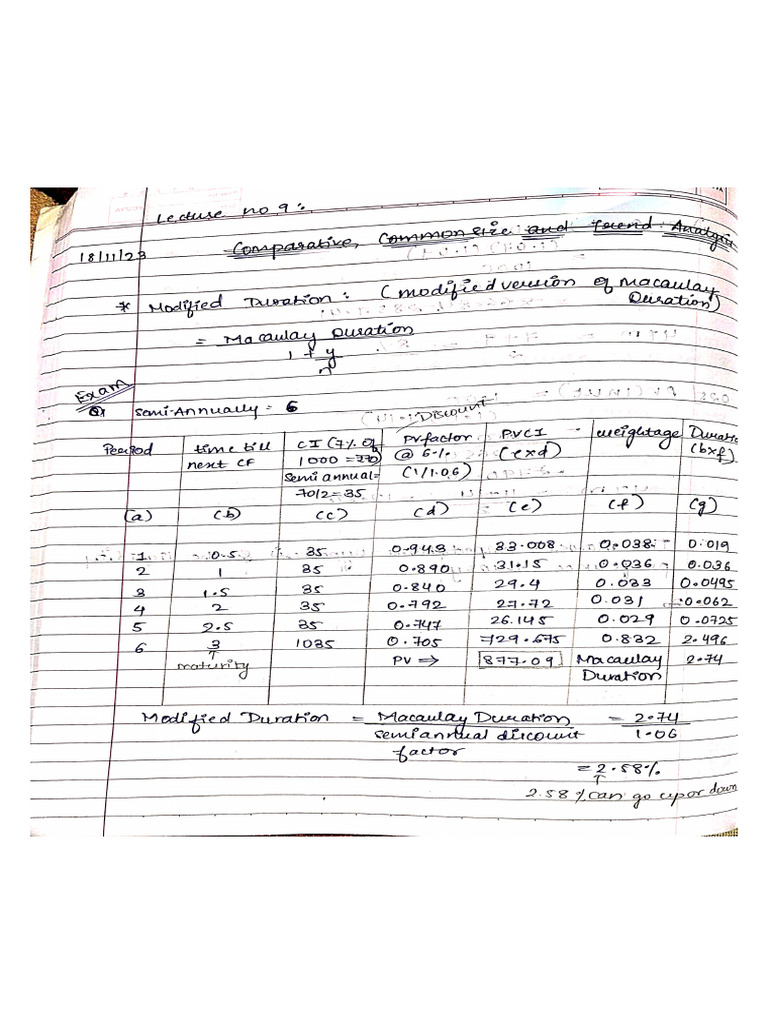 Lecture no 9:
18/11/23 Comparative, Common size and Trend Analysis
* Modified Duration: (modified version of Macaulay Duration)
= Macaulay Duration
1 + y
n
Exam
Q) Semi-Annually = 6
Discount
Period time till next CF CI (7% of 1000 = 270) Semi annual = 70/2 = 35 PV factor @ 6% (1/1.06) PVCI (cxd) weightage Duratio (bxf)
(a) (b) (c) (d) (e) (f) (g)
1 0.5 35 0.943 33.008 0.038 0.019
2 1 35 0.890 31.15 0.036 0.036
3 1.5 35 0.840 29.4 0.033 0.0495
4 2 35 0.792 27.72 0.031 0.062
5 2.5 35 0.747 26.145 0.029 0.0725
6 3 1035 0.705 729.675 0.832 2.496
↑ maturity PV ⇒ 877.09 Macaulay Duration 2.74
Modified Duration = Macaulay Duration = 2.74
semiannual discount factor 1.06
= 2.58%
↑
2.58% can go up or down